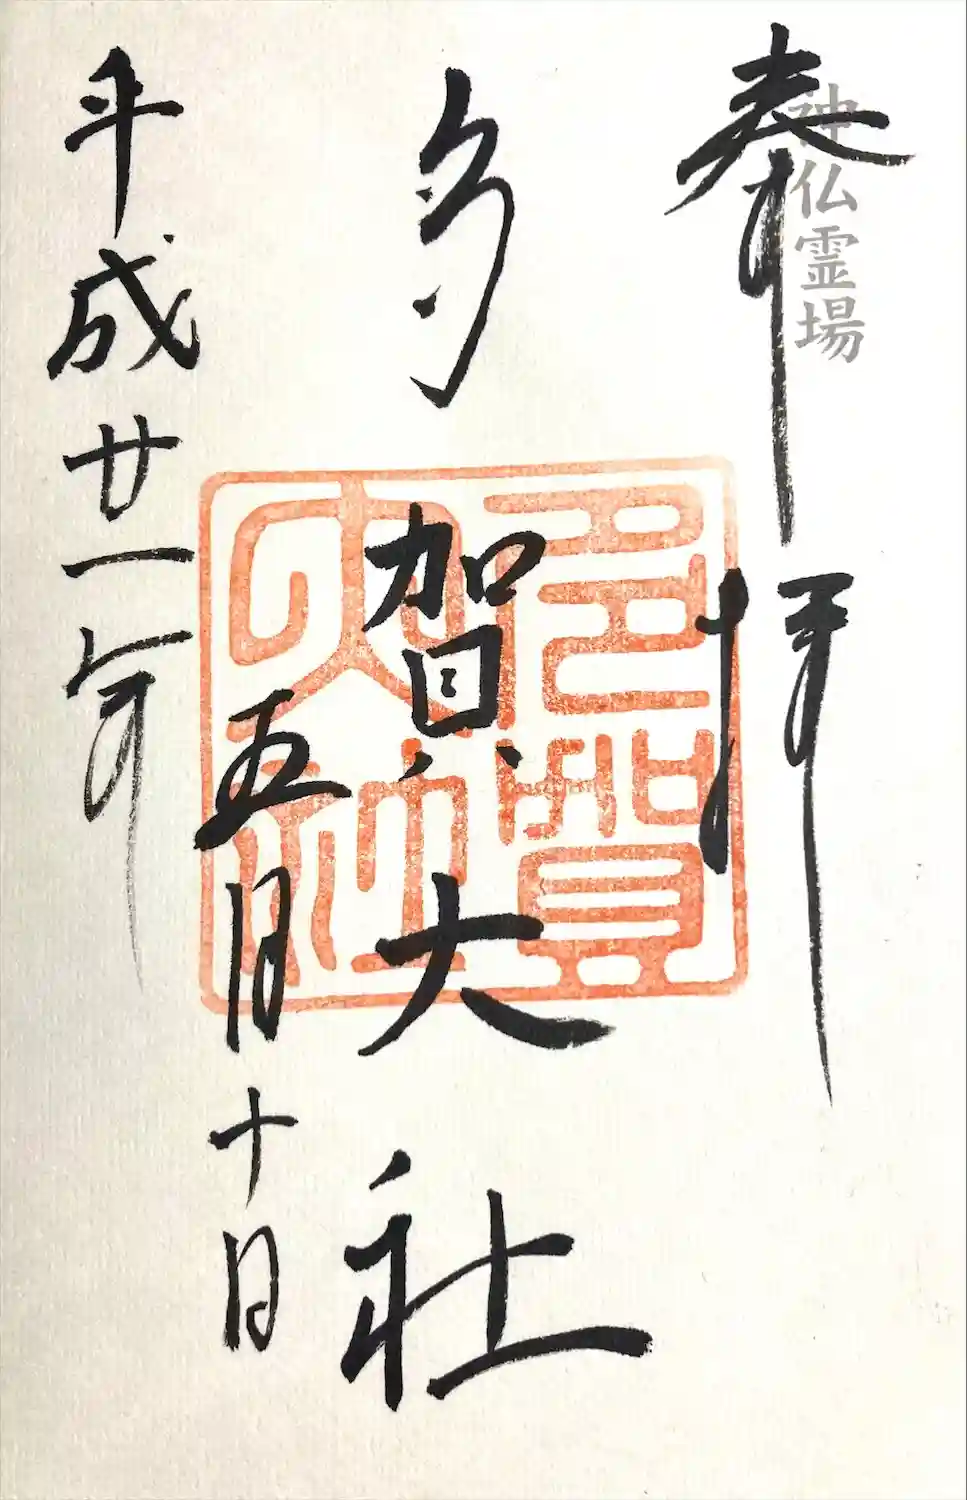 神仏霊場
奉拝
多賀大社
多賀大社
平成廿一年
五月十日